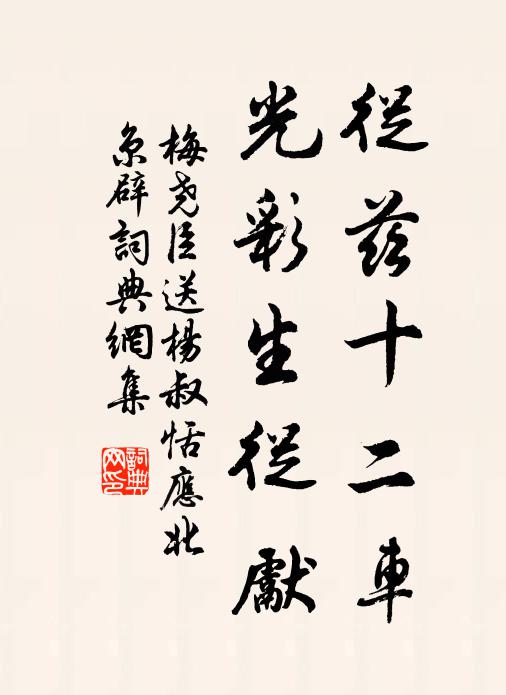 從茲十二車
光彩生從獻
梅堯臣送楊叔恬應北
京辟詞典網集
詞典
网印